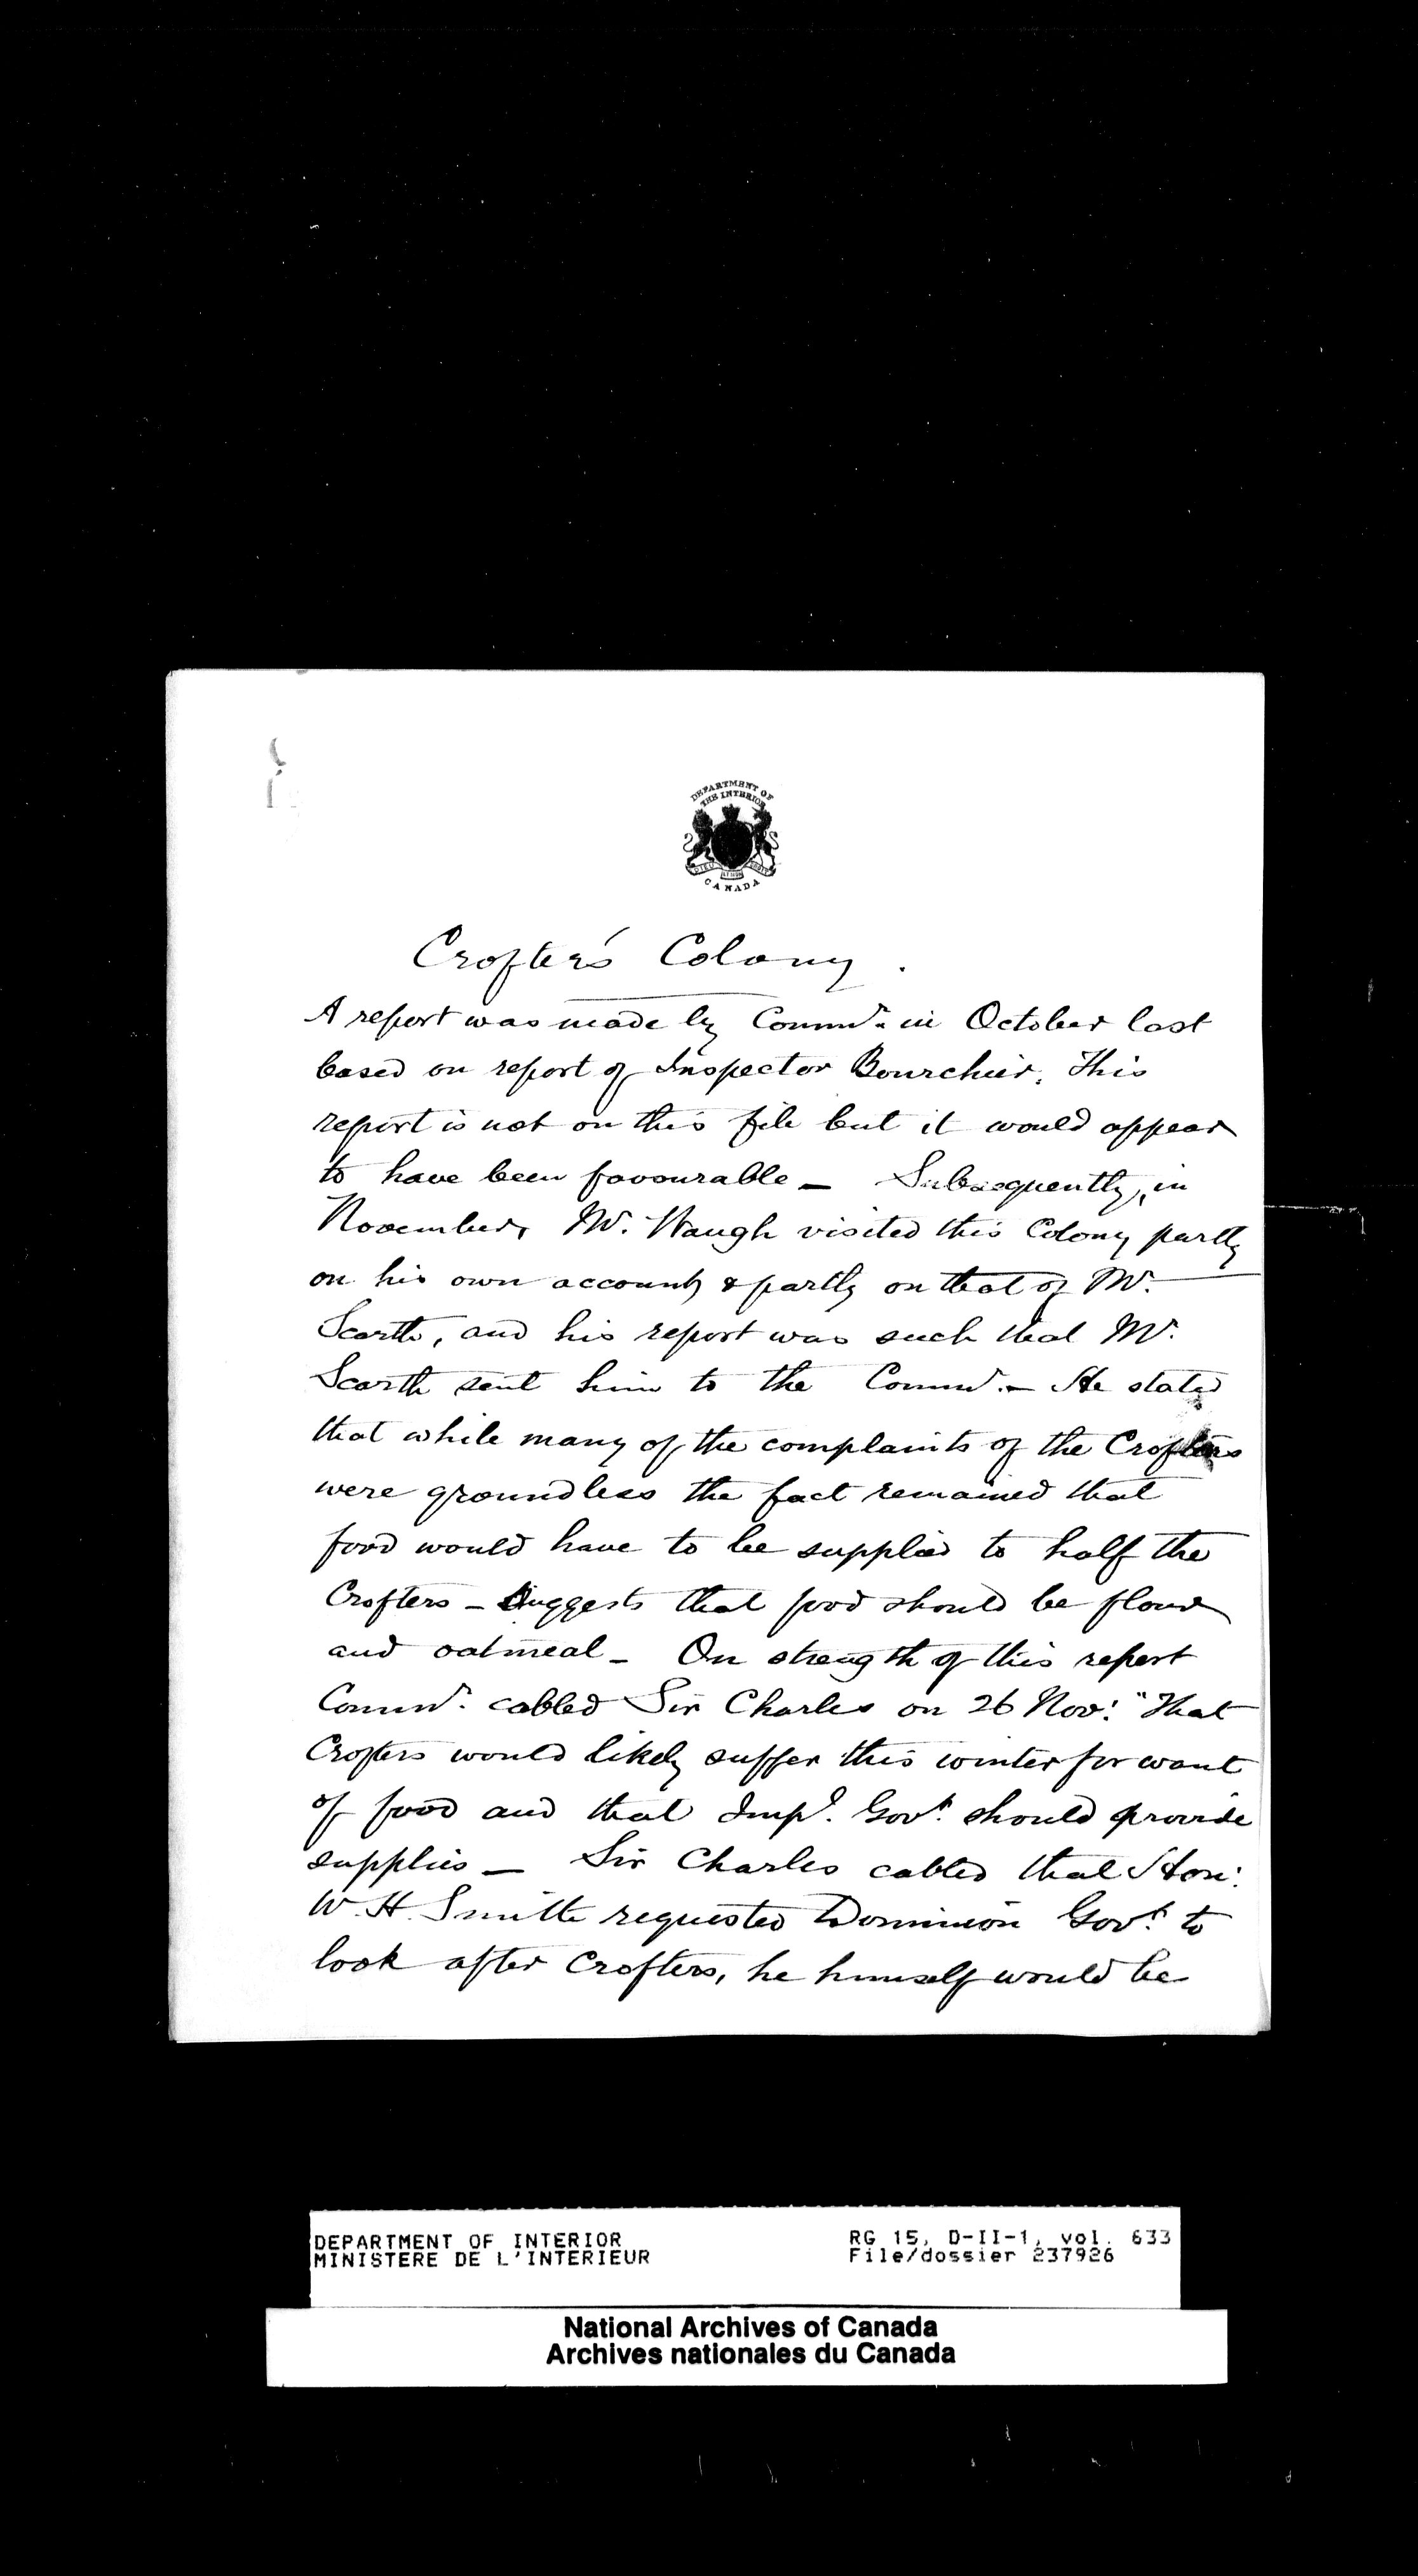 DEPARTMENT OF
THE INTERIOR
CANADA
Crofters Colony.
A report was made by Commr. in October last
based on report of Inspector Bourchier. This
report is not on this file but it would appear
to have been favourable – Subsequently, in
November, Mr. Waugh visited this Colony partly
on his own account & partly on that of Mr.
Scarth, and his report was such that Mr.
Scarth sent him to the Commr. – He stated
that while many of the complaints of the Crofters
were groundless the fact remained that
food would have to be supplied to half the
Crofters – Suggests that food should be flour
and oatmeal – On strength of this report
Commr. cabled Sir Charles on 26 Nov: "That
Crofters would likely suffer this winter for want
of food and that Impl. Govt. should provide
supplies – Sir Charles cabled that Hon:
W. H. Smith requested Dominion Govt. to
look after Crofters, he himself would be
DEPARTMENT OF INTERIOR
MINISTERE DE L'INTERIEUR
RG 15, D-II-1, vol. 633
File/dossier 237926
National Archives of Canada
Archives nationales du Canada